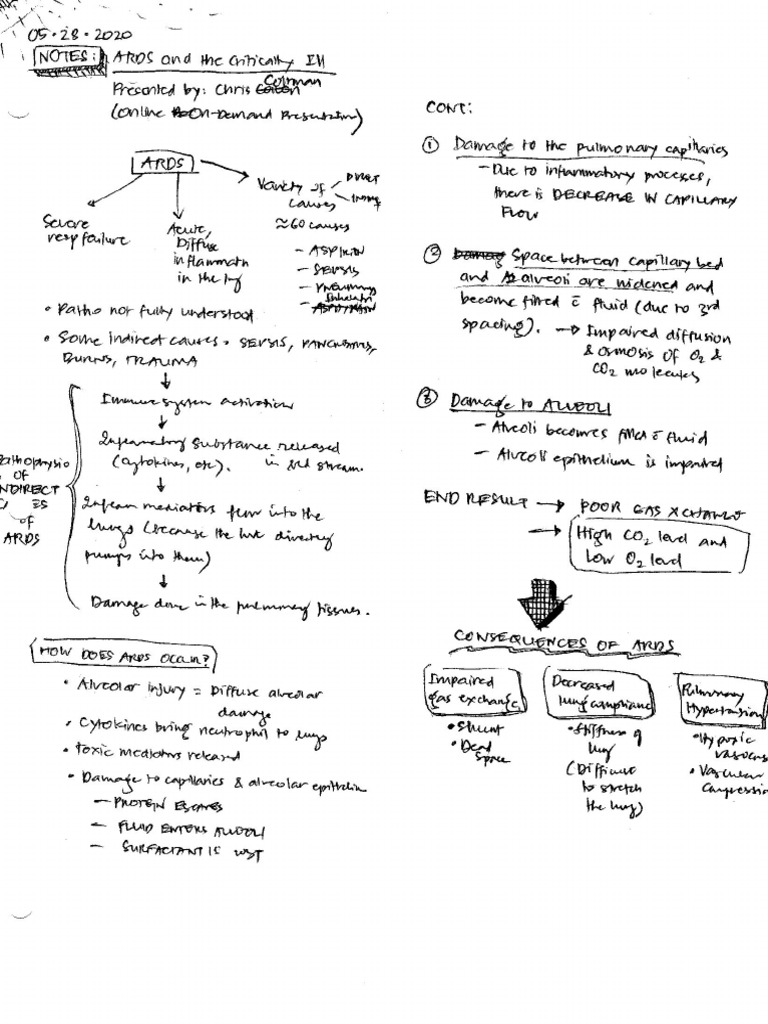 05·28·2020
NOTES: ARDS and the Critically Ill
Presented by: Chris Coltman
(Online On-Demand Presentation)
ARDS
Severe
resp failure
Acute,
Diffuse
inflammatn
in the lg
Variety of
causes
DIRECT
≈60 causes
- ASPIRATN
- SEPSIS
- PNEUMONIA
• Patho not fully understood
• Some indirect causes - SEPSIS, PANCREATITIS,
BURNS, TRAUMA
↓
Immune system activation
↓
Inflammatory substance released
(cytokines, etc). in bld stream.
↓
Inflam mediators flow into the
lungs (because the hrt directly
pumps into them)
↓
Damage done in the pulmonary tissues.
OF
of
ARDS
HOW DOES ARDS OCCUR?
• Alveolar injury = Diffuse alveolar
damage
• Cytokines bring neutrophil to lungs
• toxic mediators released
• Damage to capillaries & alveolar epithelium
— PROTEIN ESCAPES
— FLUID ENTERS ALVEOLI
— SURFACTANT IS LOST
CONT:
① Damage to the pulmonary capillaries
- Due to inflammatory processes,
there is DECREASE IN CAPILLARY
FLOW
② Space between capillary bed
and alveoli are widened and
become filled c̄ fluid (due to 3rd
spacing). → Impaired diffusion
& osmosis of O2 &
CO2 molecules
③ Damage to ALVEOLI
- Alveoli becomes filled c̄ fluid
- Alveoli epithelium is impaired
END RESULT → POOR GAS XCHANGE
→ High CO2 level and
Low O2 level
CONSEQUENCES OF ARDS
Impaired
gas exchange
• Shunt
• Dead
Space
Decreased
lung compliance
• Stiffness of
lung
(Difficult
to stretch
the lung)
Pulmonary
Hypertension
• Hypoxic
• Vascular
Compression